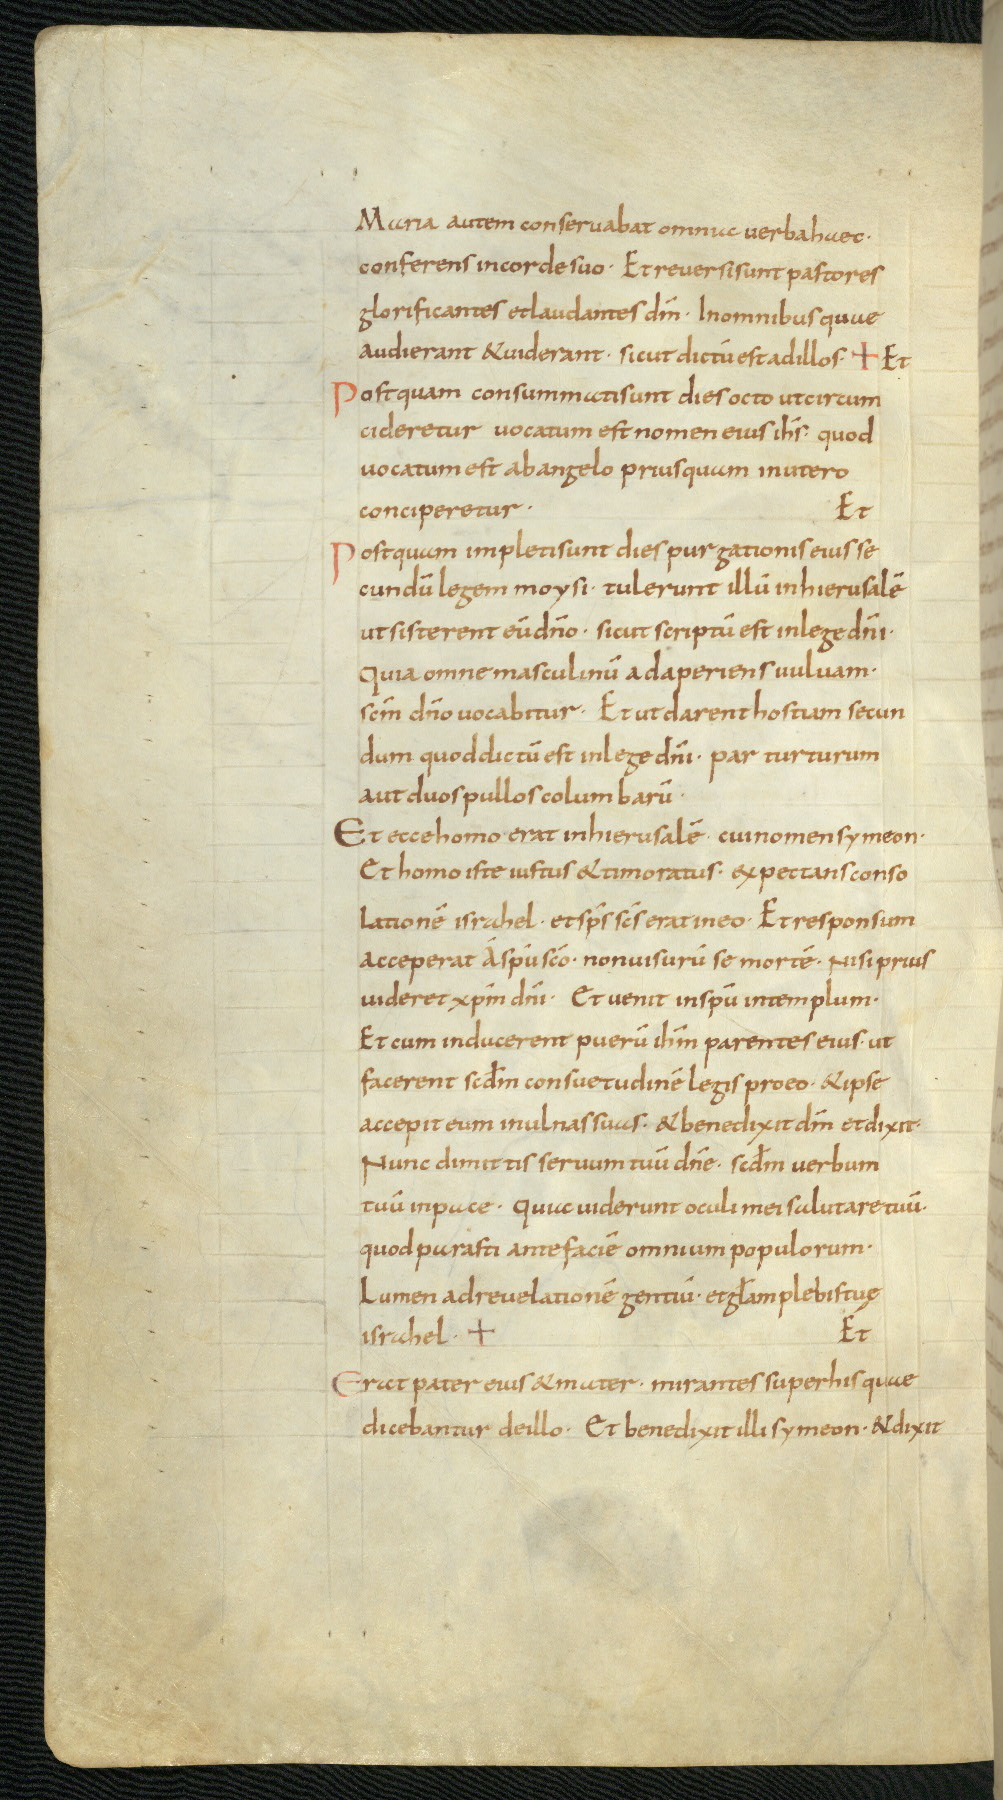 Maria autem conservabat omnia verba haec·
conferens in corde suo· Et reversi sunt pastores
glorificantes et laudantes dm̄· In omnibus quae
audierant & uiderant· sicut dictū est ad illos· + Et
Postquam consummati sunt dies octo ut circum
cideretur vocatum est nomen eius ih̄s· quod
vocatum est ab angelo priusquam in utero
conciperetur· Et
Postquam impleti sunt dies purgationis eius se
cundū legem moysi· tulerunt illū in hierusalē
ut sisterent eū dn̄o· sicut scriptū est in lege dn̄i·
Quia omne masculinū adaperiens uuluam·
sc̄m dn̄o vocabitur· Et ut darent hostiam secun
dum quod dictū est in lege dn̄i· par turturum
aut duos pullos columbarū·
Et ecce homo erat in hierusalē· cui nomen symeon·
Et homo iste iustus & timoratus· expectans conso
lationē israhel· et sp̄s sc̄s erat in eo· Et responsum
acceperat A sp̄u sc̄o· non uisurū se mortē· Nisi prius
uideret xp̄m dn̄i· Et uenit in sp̄u in templum·
Et cum inducerent puerū ih̄m parentes eius· ut
facerent scdm̄ consuetudinē legis pro eo· & ipse
accepit eum in ulnas suas· & benedixit dm̄ et dixit·
Nunc dimittis servum tuū dn̄e· scdm̄ verbum
tuū in pace· Quia uiderunt oculi mei salutare tuū·
quod parasti ante faciē omnium populorum·
Lumen ad revelationē gentiū· et gl̄am plebis tuę
israhel· + Et
Erat pater eius & mater· mirantes super his quae
dicebantur de illo· Et benedixit illi symeon· & dixit